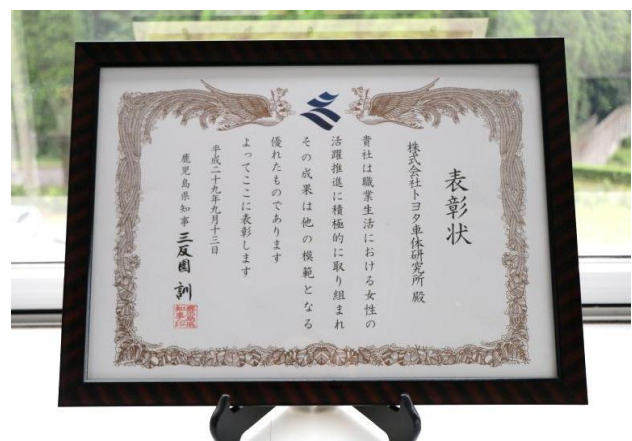 表彰状
株式会社トヨタ車体研究所 殿
貴社は職業生活における女性の
活躍推進に積極的に取り組まれ
その成果は他の模範となる
優れたものであります
よってここに表彰します
平成二十九年九月十三日
鹿児島県知事 三反園 訓
鹿児島県知事印